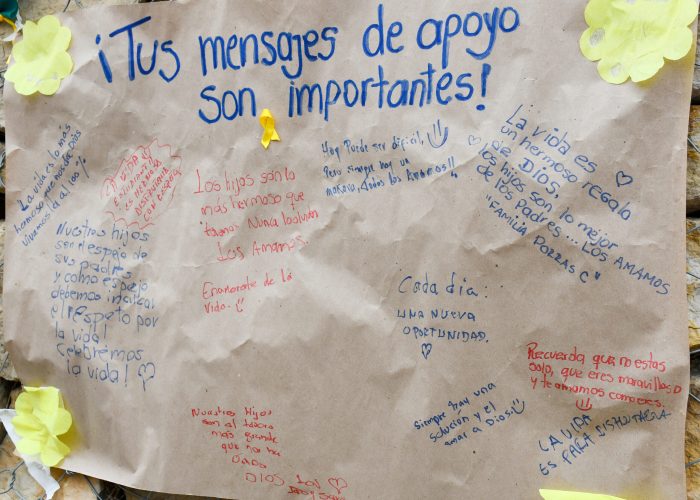 ¡Tus mensajes de apoyo
son importantes!
La vida es lo más
hermoso que nos da Dios
vivamosla al 100%
La vida
es
disfrutarla
con
Los hijos son lo
más hermoso que
tenemos Nunca lo olviden
Los Amamos.
Enamorate de la
vida.
Hoy Puede ser dificil,
Pero siempre hay un
mañana, ¡todos los Amamos!!
La vida es
un hermoso regalo
de DIOS,
los hijos son lo mejor
de los Padres... LOS AMAMOS
"FAMILIA PORRAS C"
Nuestros hijos
son el espejo de
sus padres
y como espejo
debemos inculcar
el respeto por
la vida!
Celebremos
la vida!
Cada dia:
UNA NUEVA
OPORTUNIDAD.
Recuerda que no estas
solo, que eres maravilloso
y te amamos como eres.
Siempre hay una
solución y el
amar a Dios.
LA VIDA
ES PARA DISFRUTARLA
Nuestros Hijos
son el tesoro
más grande
que nos ha
Dado
DIOS Los